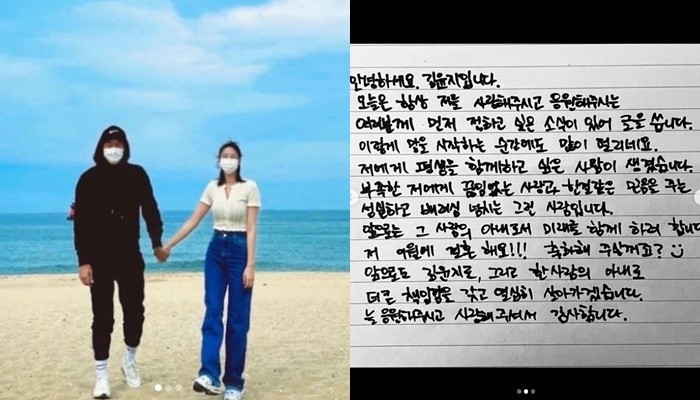 안녕하세요. 김윤지입니다.
오늘은 항상 저를 사랑해주시고 응원해주시는
여러분께 먼저 전하고 싶은 소식이 있어 글을 씁니다.
이렇게 말을 시작하는 순간에도 맘이 떨리네요.
저에게 평생을 함께하고 싶은 사람이 생겼습니다.
부족한 저에게 끊임없는 사랑과 한결같은 믿음을 주는
성실하고 배려심 넘치는 그런 사람입니다.
앞으로는 그 사람의 아내로서 미래를 함께 하려 합니다
저 9월에 결혼 해요!!! 축하해 주실꺼죠?
앞으로도 김윤지로, 그리고 한사람의 아내로
더큰 책임감을 갖고 열심히 살아가겠습니다.
늘 응원해주시고 사랑해주셔서 감사합니다.